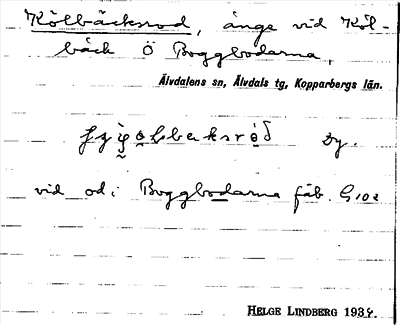 Kölbäcksrod, änge vid Köl-
bäck Ö Boggbodarna,
Älvdalens sn, Älvdals tg, Kopparbergs län.
Dy.
vid od. i Boggbodarna fäb. G 102
HELGE LINDBERG 1934.